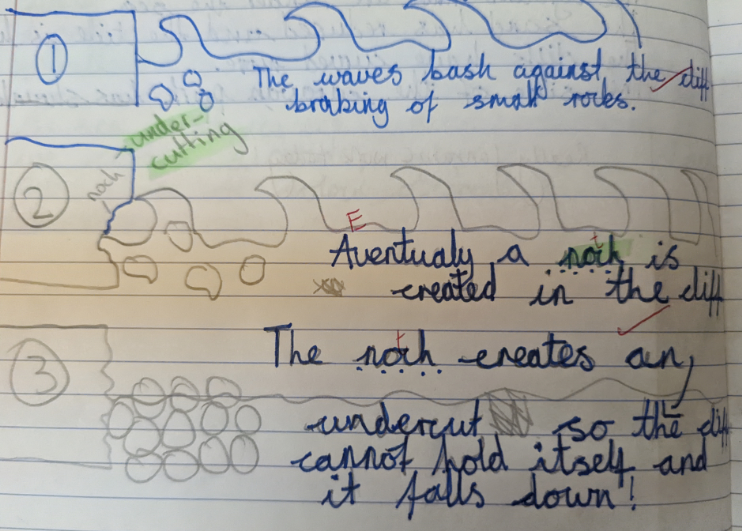 ①
The waves bash against the cliff
brabing of small rocks.
under-
cutting
noch
②
E
Aventualy a noch is
t
created in the cliff
t
The noch creates an
③
undercut so the cliff
cannot hold itself and
it falls down!